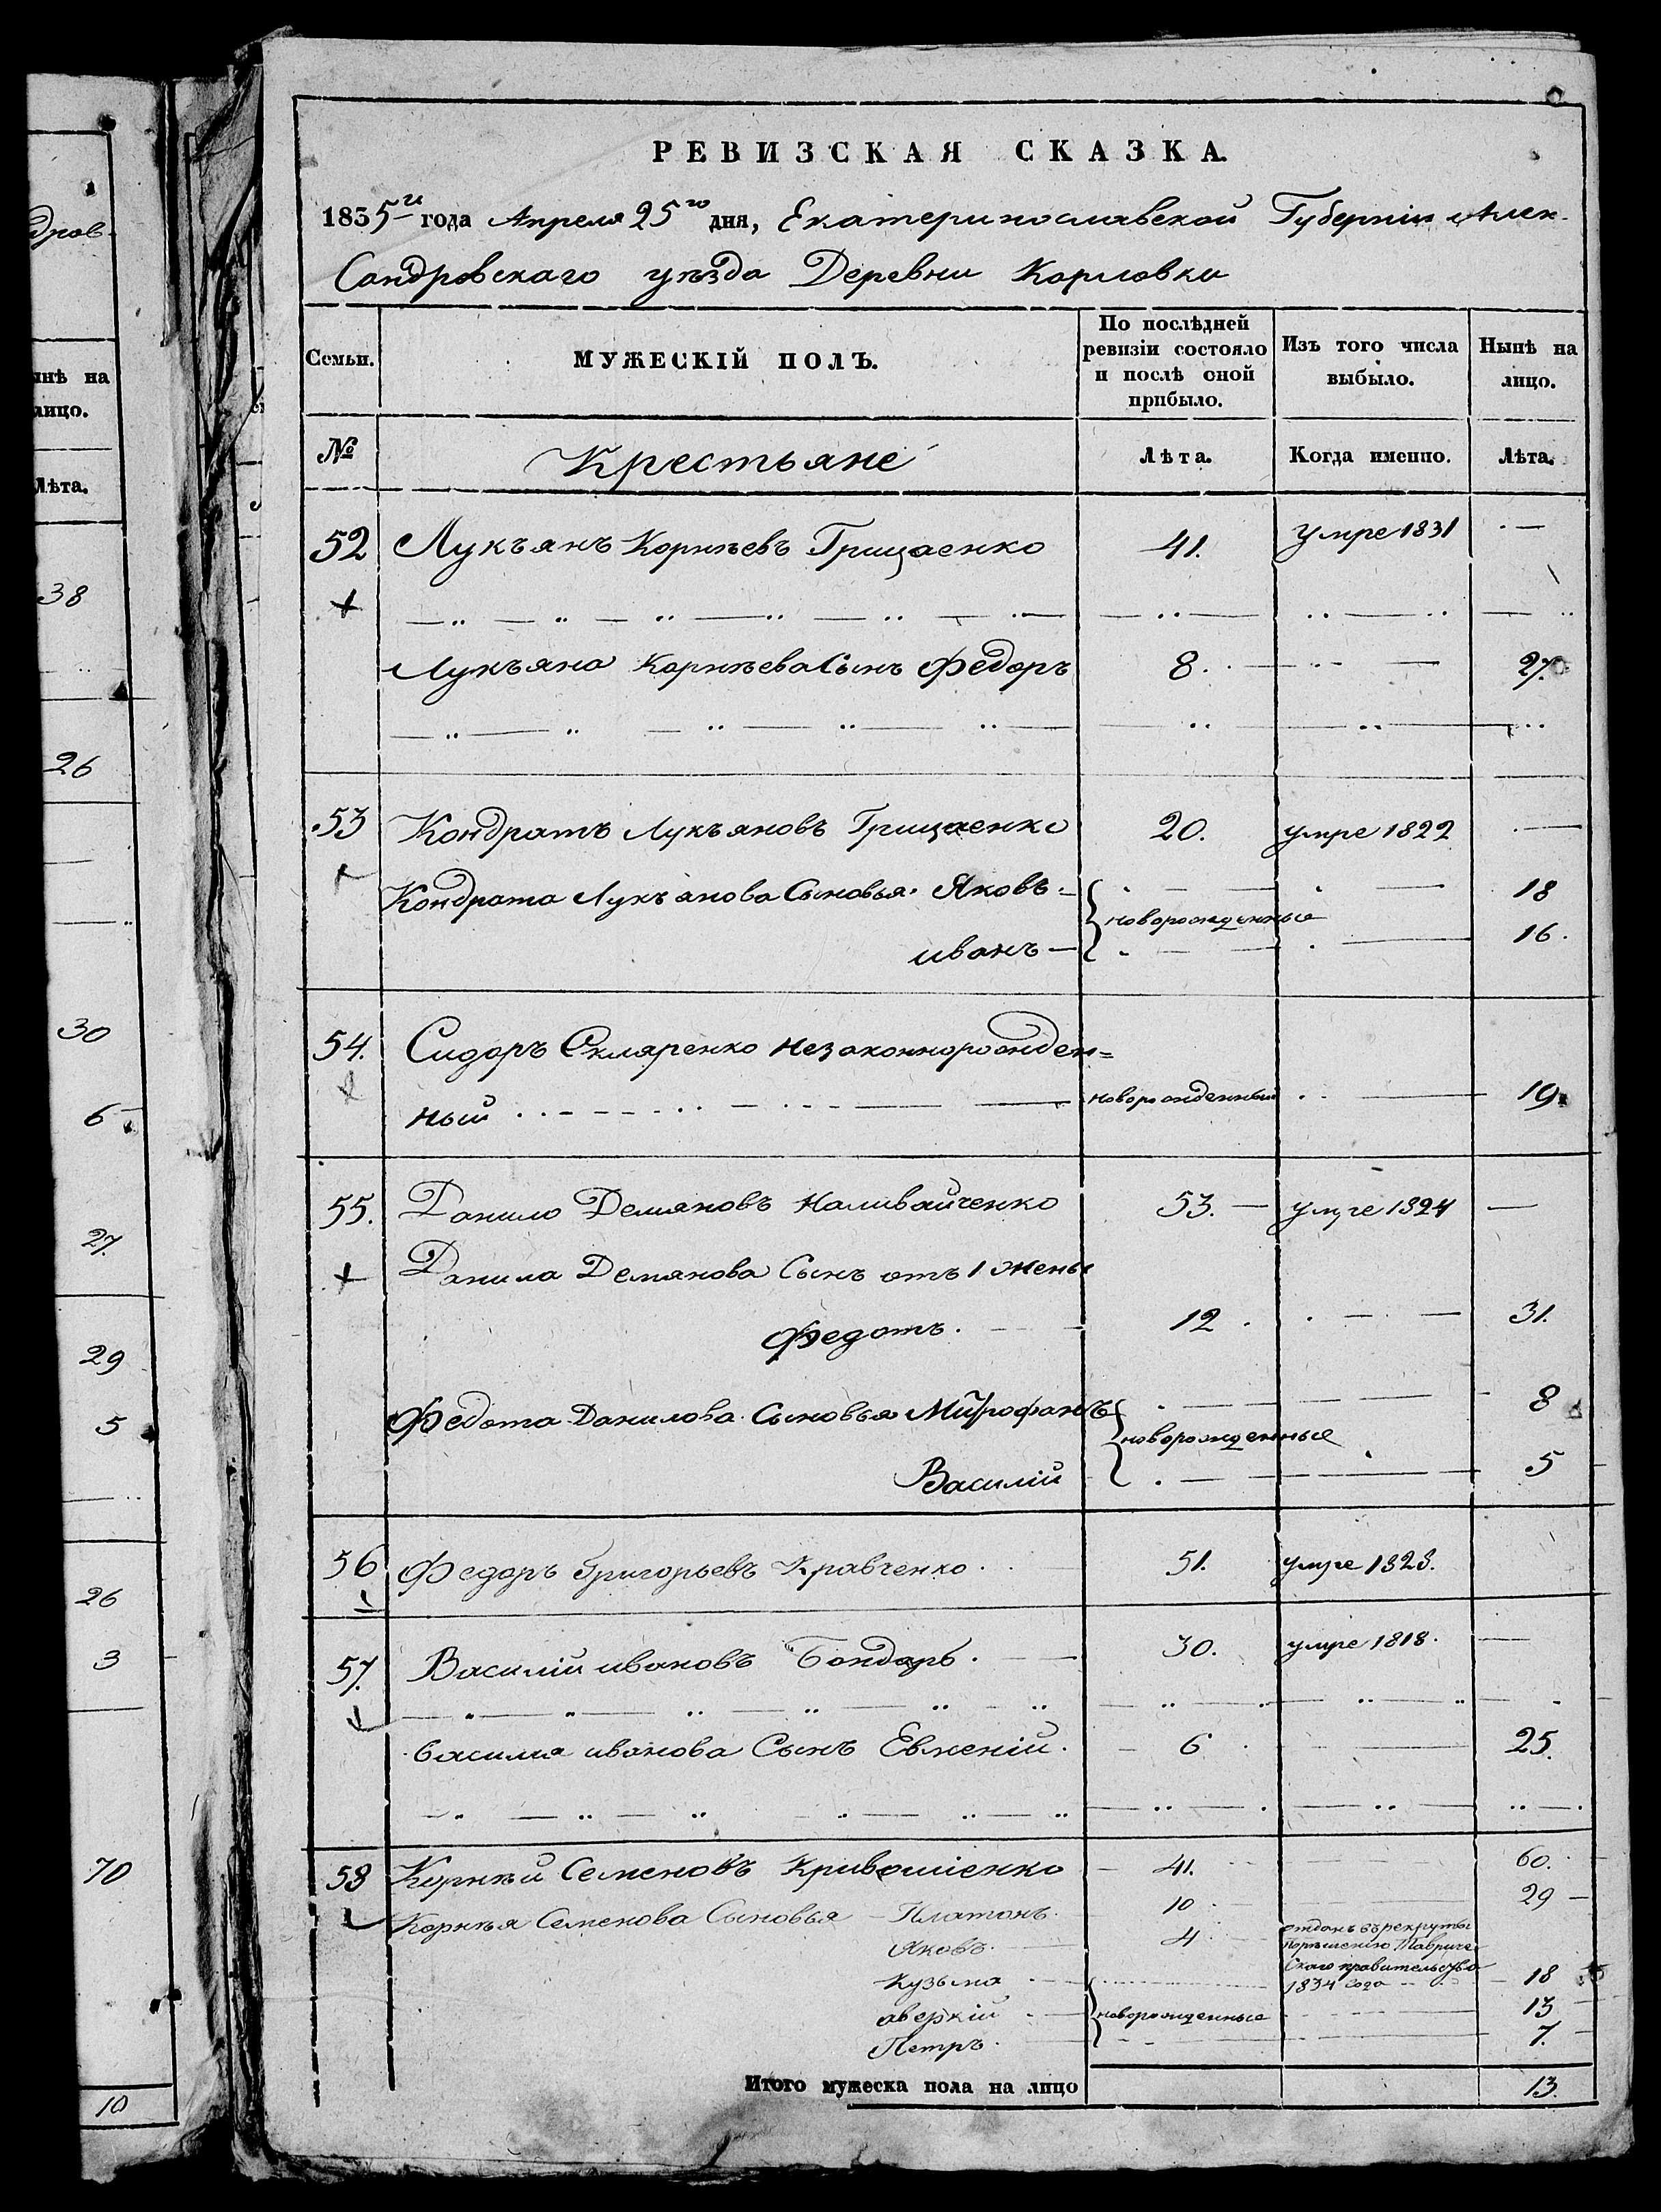 дров-
инѣ на
лицо.
Лѣта.
38
26
30
6
27.
29
5
26
3
70
10
РЕВИЗСКАЯ СКАЗКА.
1835го года Апреля 25го дня, Екатеринославской Губерніи Алек-
Сандровскаго уѣзда Деревни Карловки
Семьи. МУЖЕСКІЙ ПОЛЪ. По послѣдней ревизіи состояло и послѣ оной прибыло. Изъ того числа выбыло. Нынѣ на лицо.
№ Крестьяне Лѣта. Когда именно. Лѣта.
52 Лукъянъ Корнѣевъ Грицаенко 41. умре 1831
Лукъяна Корнѣева Сынъ Федоръ 8. 27.
53 Кондратъ Лукъяновъ Грицаенко 20. умре 1822
Кондрата Лукъянова Сыновья Яковъ 18
новорожденные
иванъ 16.
54. Сидоръ Скляренко незаконнорожден=
ный новорожденный 19
55. Данило Демяновъ Наливайченко 53. умре 1824
Данила Демянова Сынъ отъ 1 жены
Федотъ. 12. 31.
Федота Данилова Сыновья Митрофанъ 8
новорожденные
Василій 5
56 Федоръ Григорьевъ Кравченко 51. умре 1823.
57. Василій ивановъ Бондарь. 30. умре 1818.
Василия иванова Сынъ Евмений. 6 25.
58 Корнѣй Семеновъ Кривошіенко 41. 60.
Корнѣя Семенова Сыновья Платонъ. 10 29
Яковъ. 4 отданъ въ рекруты
по решению Тавриче-
скаго правительства
1834 года
Кузьма 18
аверкій новорожденные 13
Петръ. 7.
Итого мужеска пола на лицо 13.